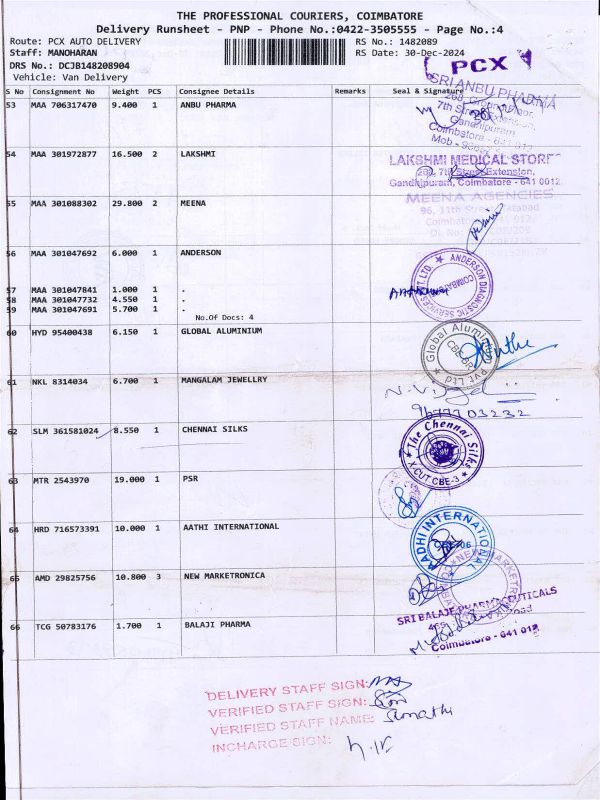 THE PROFESSIONAL COURIERS, COIMBATORE
Delivery Runsheet - PNP - Phone No.:0422-3505555 - Page No.:4
Route: PCX AUTO DELIVERY RS No.: 1482089
Staff: MANOHARAN RS Date: 30-Dec-2024
DRS No.: DCJB148208904
Vehicle: Van Delivery
PCX
S No Consignment No Weight PCS Consignee Details Remarks Seal & Signature
53 MAA 706317470 9.400 1 ANBU PHARMA
SRI ANBU PHARMA
268, Ground Floor,
7th Street Extension,
Gandhipuram,
Coimbatore - 641 012
54 MAA 301972877 16.500 2 LAKSHMI
LAKSHMI MEDICAL STORE
7th Street Extension,
Gandhipuram, Coimbatore - 641 0012
55 MAA 301088302 29.800 2 MEENA
MEENA AGENCIES
96, 11th Street Tatabad
56 MAA 301047692 6.000 1 ANDERSON
ANDERSON DIAGNOSTIC SERVICES PVT. LTD.
COIMBATORE
57 MAA 301047841 1.000 1 .
58 MAA 301047732 4.550 1 .
59 MAA 301047691 5.700 1 .
No.Of Docs: 4
60 HYD 95400438 6.150 1 GLOBAL ALUMINIUM
Global Aluminium Pvt Ltd
61 NKL 8314034 6.700 1 MANGALAM JEWELLRY
9677703232
62 SLM 361581024 8.550 1 CHENNAI SILKS
The Chennai Silks
X-CUT CBE-3
63 MTR 2543970 19.000 1 PSR
64 HRD 716573391 10.000 1 AATHI INTERNATIONAL
AADHI INTERNATIONAL
65 AMD 29825756 10.800 3 NEW MARKETRONICA
66 TCG 50783176 1.700 1 BALAJI PHARMA
SRI BALAJE PHARMACEUTICALS
Coimbatore - 641 012
DELIVERY STAFF SIGN:
VERIFIED STAFF SIGN:
VERIFIED STAFF NAME: Sumathi
INCHARGE SIGN: